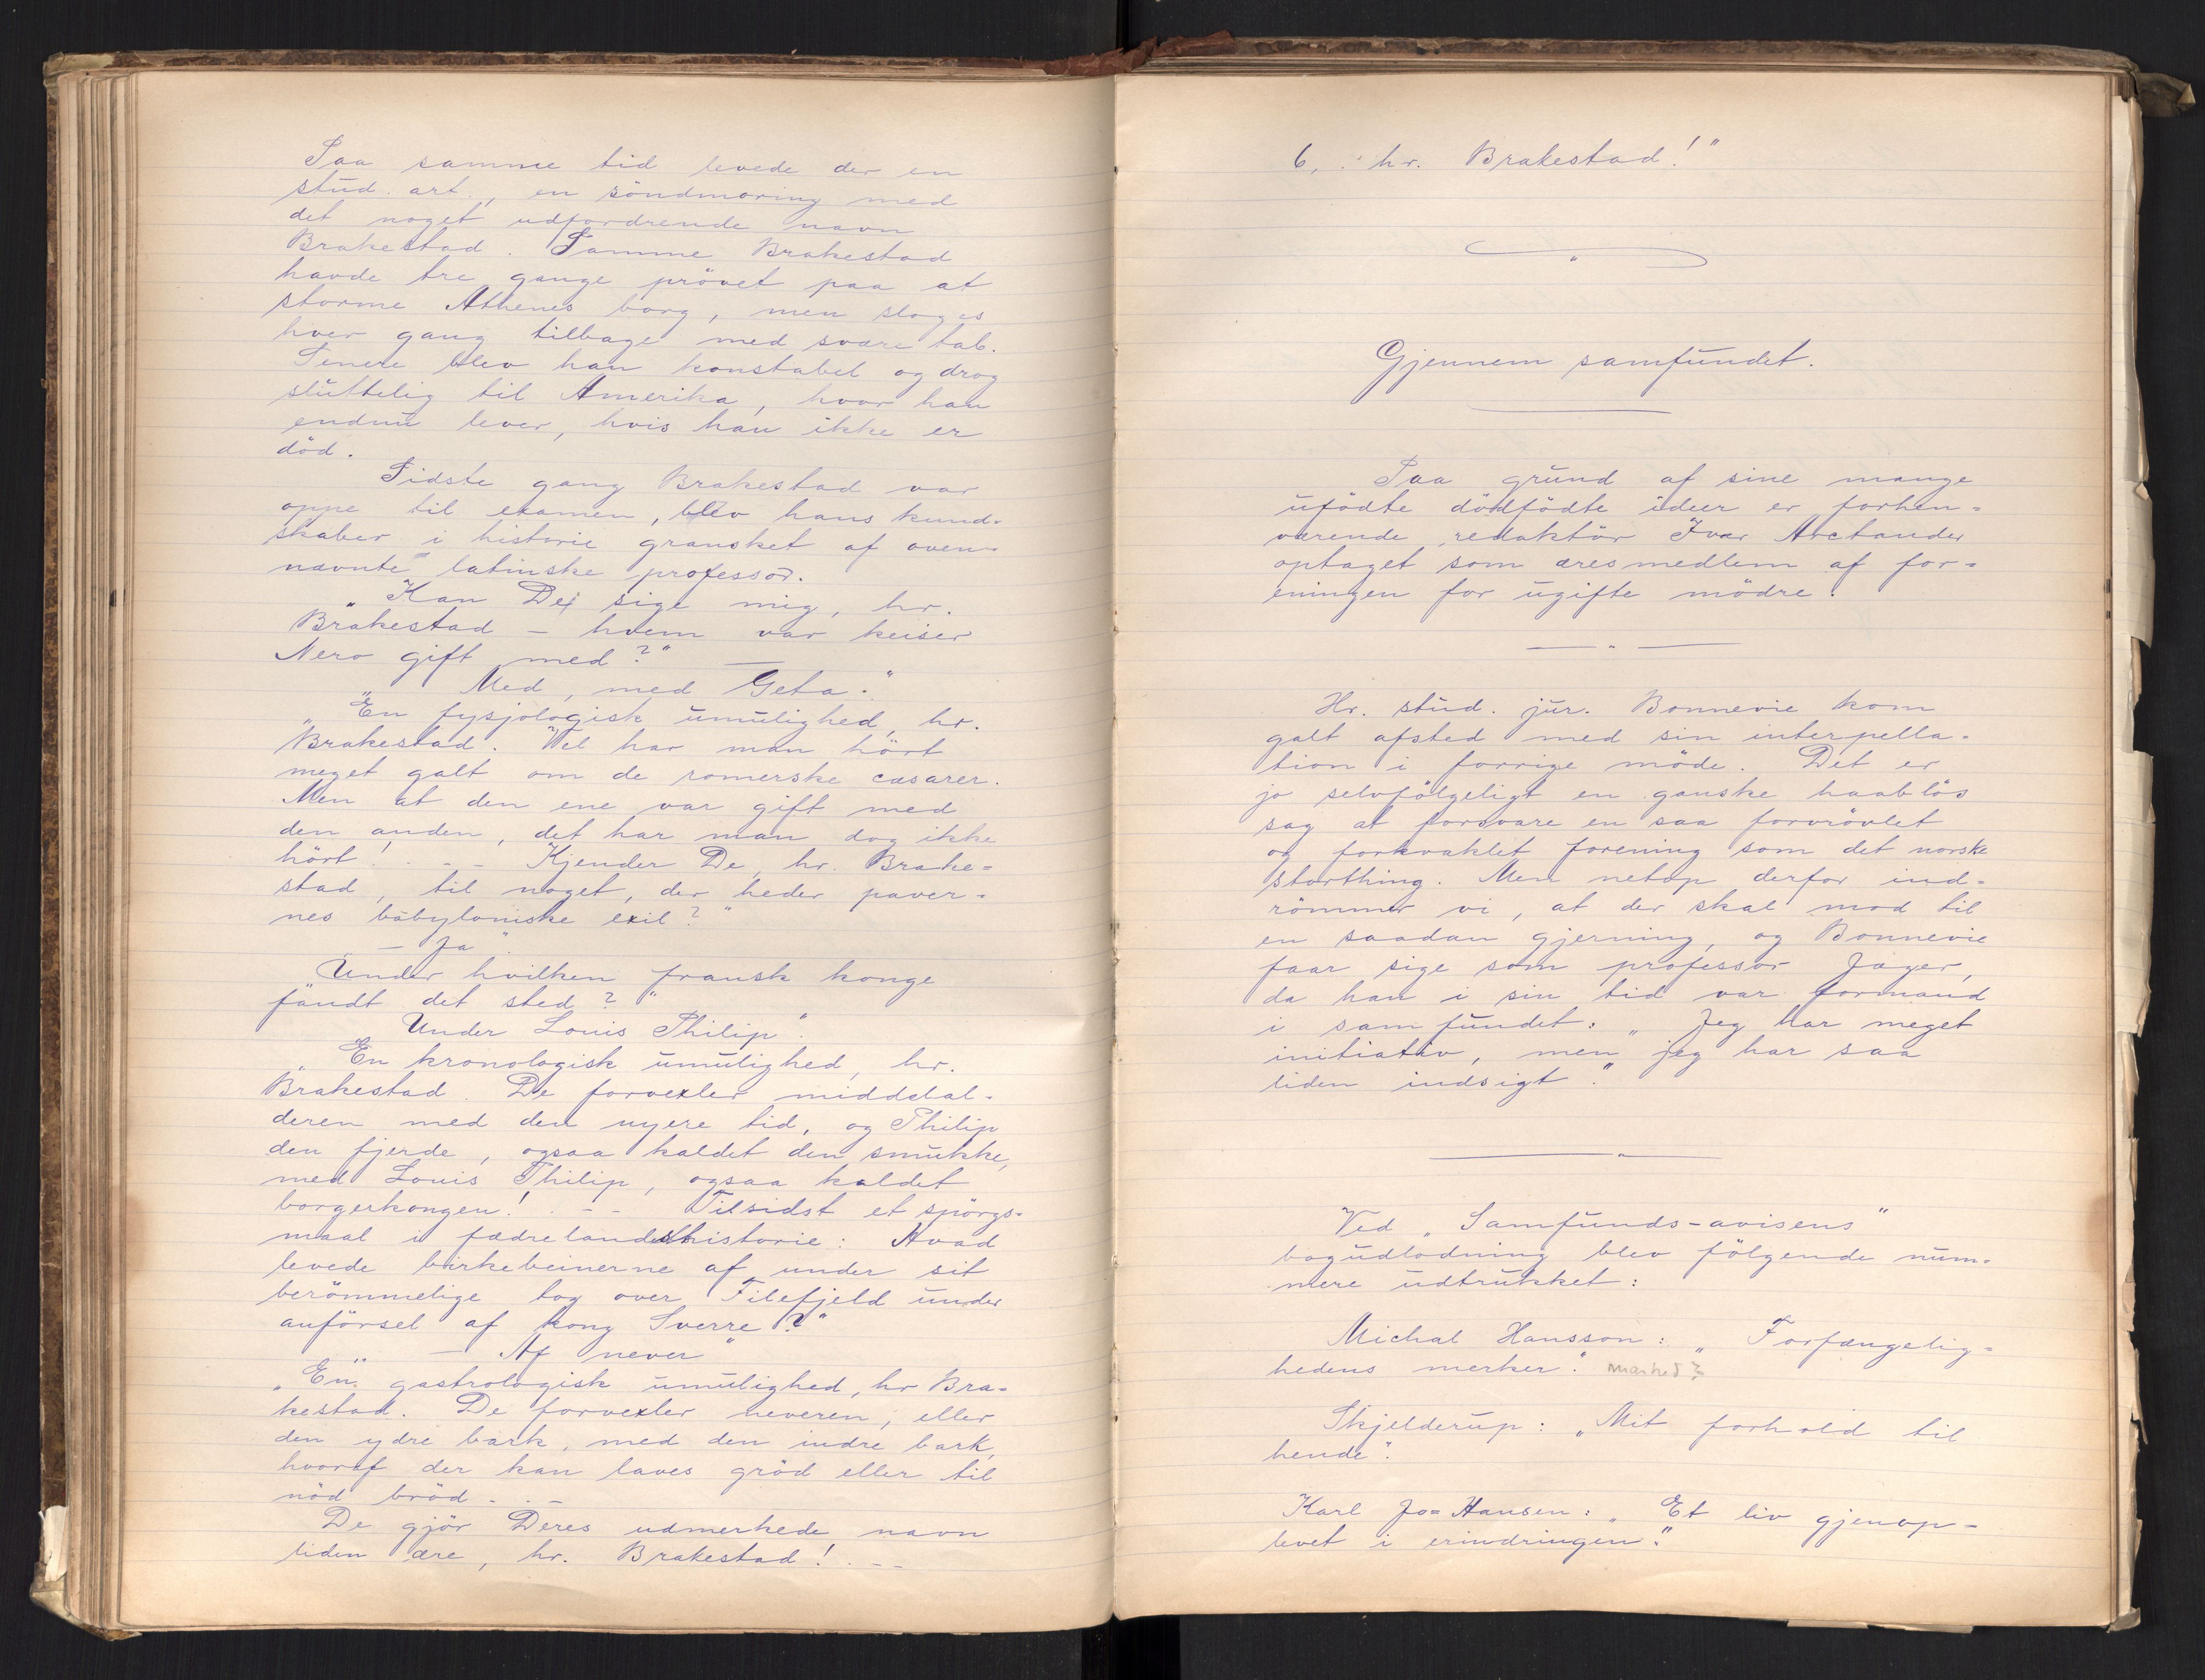 Paa samme tid levede der en
stud. art., en söndmöring med
det noget udfordrende navn
Brakestad. Samme Brakestad
havde tre gange prövet paa at
storme Athenes borg, men sloges
hver gang tilbage med svære tab.
Senere blev han konstabel og drog
sluttelig til Amerika, hvor han
endnu lever, hvis han ikke er
död.
Sidste gang Brakestad var
oppe til examen, blev hans kund-
skaber i historie gransket af oven-
nævnte latinske professor.
„Kan De sige mig, hr.
Brakestad – hvem var keiser
Nero gift med?" —
„Med, med Geta."
„En fysjologisk umulighed, hr.
Brakestad. Vel har man hört
meget galt om de romerske cæsarer.
Men at den ene var gift med
den anden, det har man dog ikke
hört! . – – Kjender De, hr. Brake-
stad, til noget, der heder paver-
nes babyloniske exil?"
– Ja"
Under hvilken fransk konge
fandt det sted?"
Under Louis Philip".
„En kronologisk umulighed, hr.
Brakestad. De forvexler middelal-
deren med den nyere tid, og Philip
den fjerde, ogsaa kaldet den smukke,
med Louis Philip, ogsaa kaldet
borgerkongen! . – – Tilsidst et spörgs-
maal i fædrelandshistorie: Hvad
levede birkebeinerne af under sit
berömmelige tog over Filefjeld under
anförsel af kong Sverre?"
– Af never"
„En gastrologisk umulighed, hr Bra-
kestad. De forvexler neveren, eller
den ydre bark, med den indre bark,
hvoraf der kan laves gröd eller til
nöd bröd. . –
De gjör Deres udmerkede navn
liden ære, hr. Brakestad! . – –
6, : hr. Brakestad!"
Gjennem samfundet.
Paa grund af sine mange
ufödte dödfödte ideer er forhen-
værende redaktör Ivar Arctander
optaget som æresmedlem af for-
eningen for ugifte mödre.
Hr. stud. jur. Bonnevie kom
galt afsted med sin interpella-
tion i forrige möde. Det er
jo selvfölgeligt en ganske haablös
sag at forsvare en saa forvrövlet
og forkvaklet forening som det norske
storthing. Men netop derfor ind-
römmer vi, at der skal mod til
en saadan gjerning, og Bonnevie
faar sige som professor Jæger,
da han i sin tid var formand
i samfundet: „Jeg har meget
initiativ, men jeg har saa
liden indsigt."
Ved „Samfunds-avisens"
bogudlodning blev fölgende num-
mere udtrukket:
Michal Hansson: „Forfængelig-
hedens merker." marked?
Skjelderup: „Mit forhold til
hende".
Karl Jo= Hansen: „Et liv gjenop-
levet i erindringen."